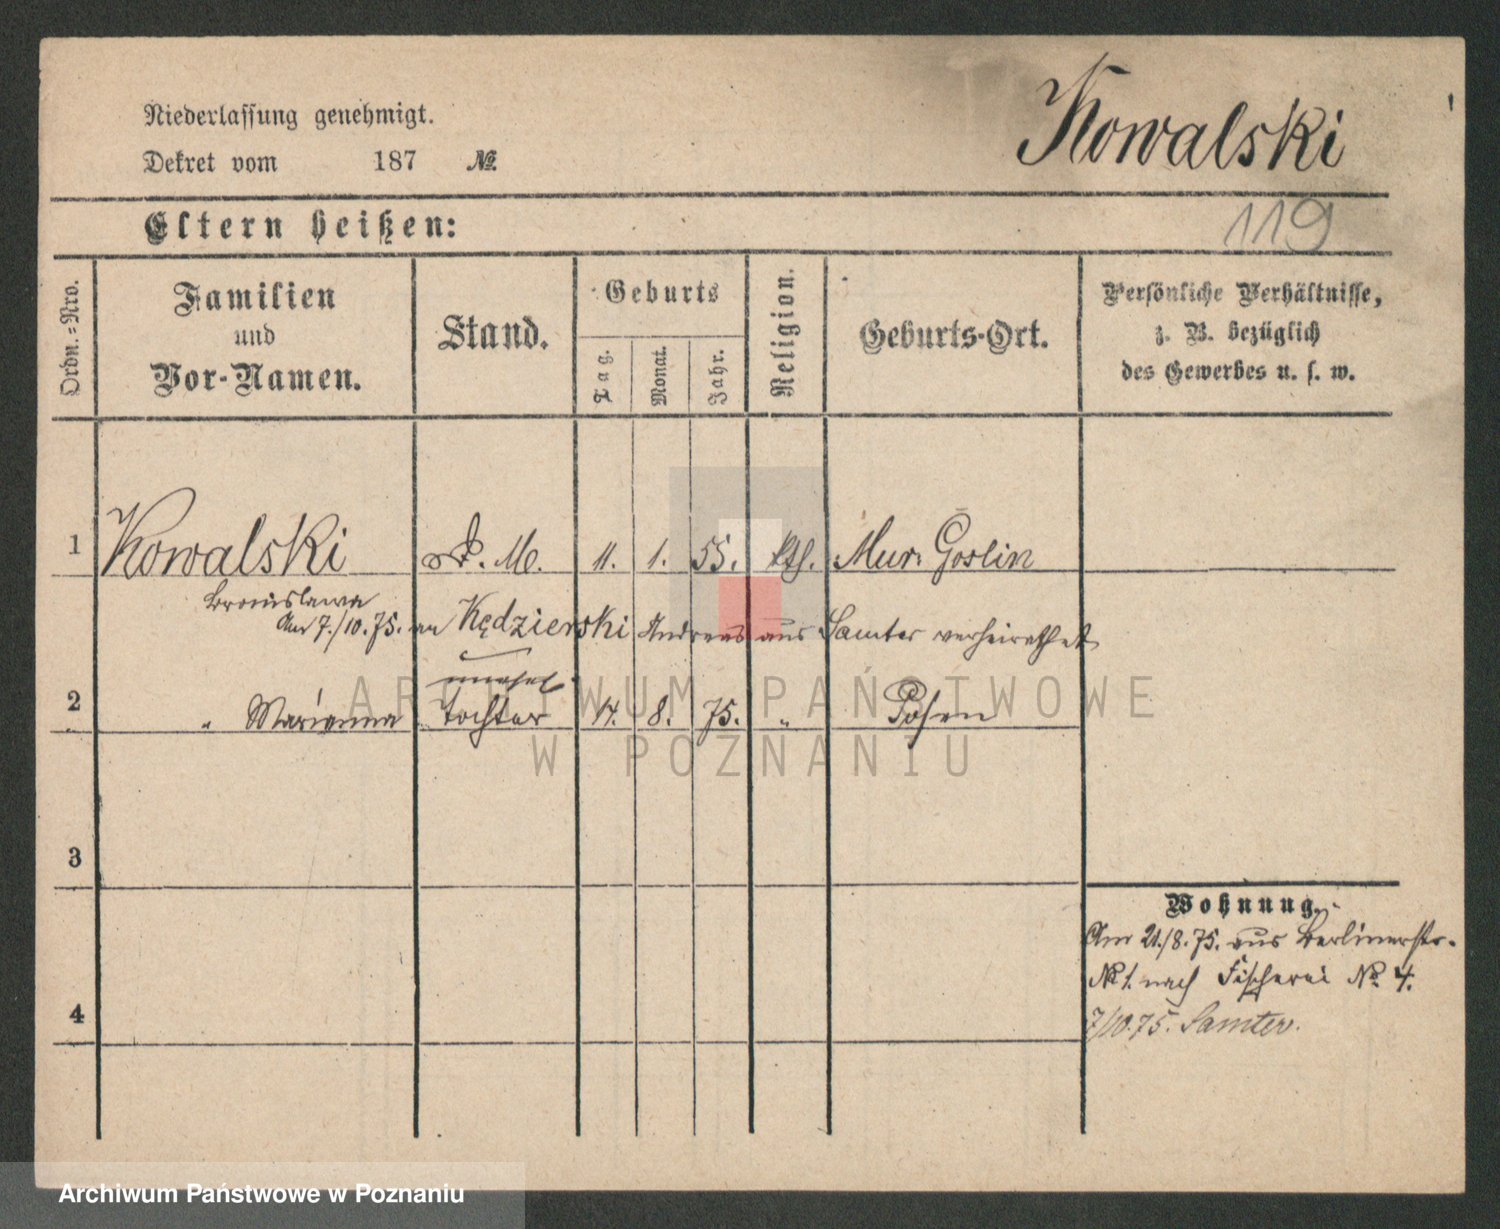 Niederlassung genehmigt.
Dekret vom 187 №
Kowalski
119
Eltern heißen:
Ordn.-Nro.
Familien
und
Vor-Namen.
Stand.
Geburts
Tag.
Monat.
Jahr.
Religion.
Geburts-Ort.
Persönliche Verhältnisse,
z. B. bezüglich
des Gewerbes u. s. w.
1 Kowalski D. M. 11. 1. 55. kth. Mur. Goslin
Bronislawa
Am 7./10.75. an Kędzierski Andreas aus Samter verheirathet
unehel
2 " Marianna Tochter 14. 8. 75. " Posen
3
4
Wohnung.
Am 21./8.75. aus Berlinerstr.
№ 1. nach Fischerei № 4.
7/10.75. Samter.
ARCHIWUM PAŃSTWOWE
W POZNANIU
Archiwum Państwowe w Poznaniu